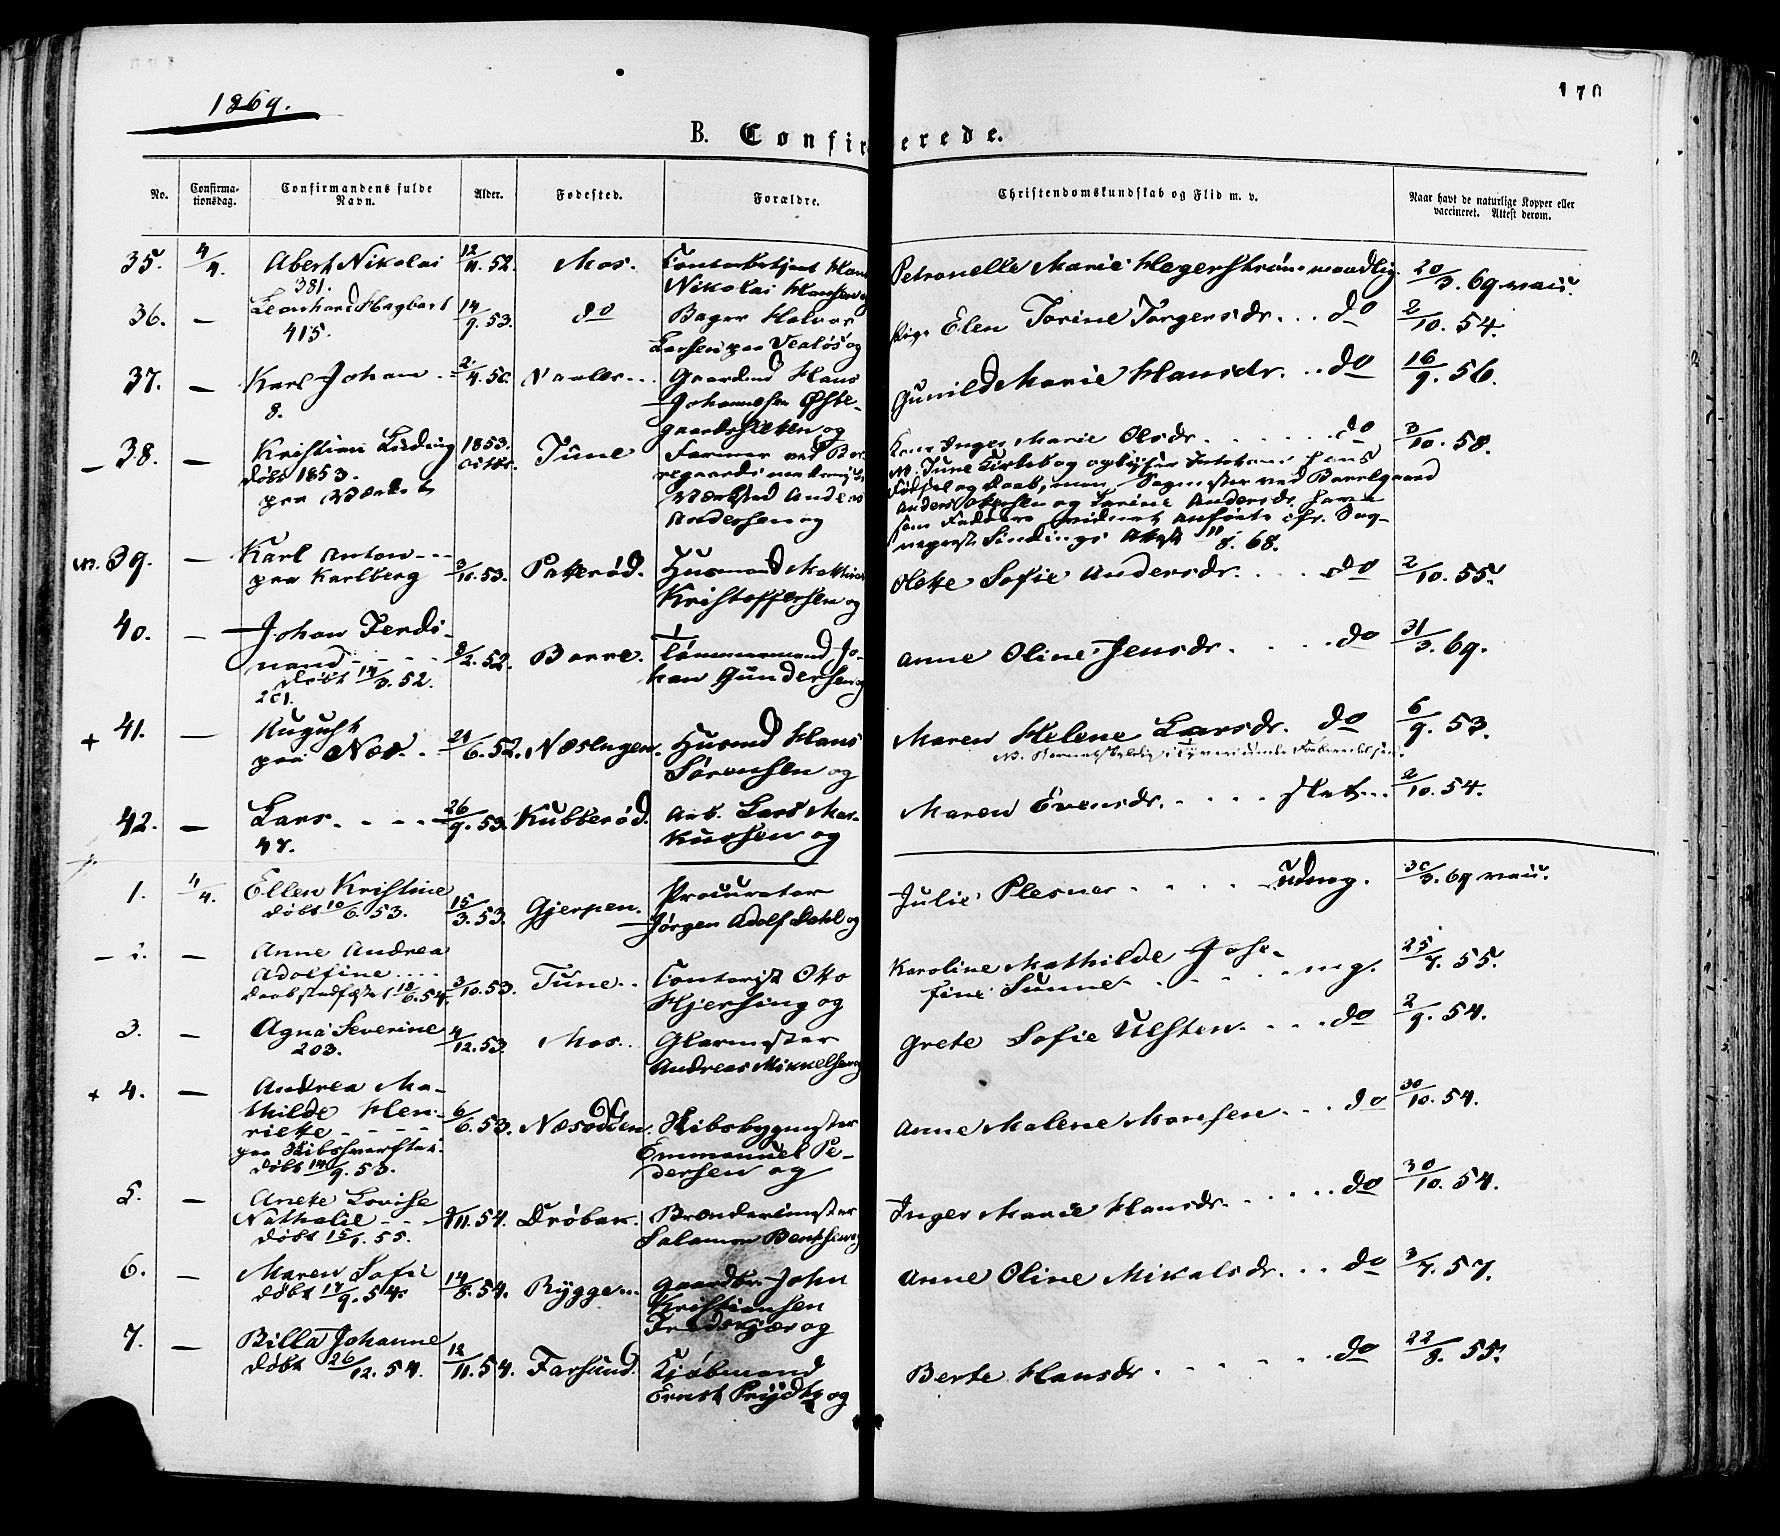 1869.
170
B. Confirmerede.
No.
Confirma-
tionsdag.
Confirmandens fulde
Navn.
Alder.
Fødested.
Forældre.
Christendomskundskab og Flid m. v.
Naar havt de naturlige Kopper eller
vaccineret. Attest derom.
35. 4/4. Abert Nikolai 12/11. 52. Mos. Contorbetjent Hans Petronelle Marie Hegerstrøm maadlig. 20/3. 69 vacc.
381. Nikolai Hansen og
36. — Leonhard Hagbart 14/9. 53. do Bager Halvor Elen Torine Torgersdr. .. do 2/10. 54.
415. Larsen paa Vealøs og
37. — Karl Johan 2/4. 50. Vaaler... Gaardmd Hans Gunild Marie Hansdr. .. do 16/9. 56.
8. Johannesen Østre-
gaardsletten og
— 38. — Kristian Ludvig 1853. Tune Farmer ved Bor- Inger Marie Olsdr. do 3/10. 58.
døbt 1853. regaards
paa Værket Anders
Andersen og
39. — Karl Anton 3/10. 53. Patterød. Husmand Mathias Olette Sofie Andersdr. .. do 2/10. 55.
paa Karlberg Kristoffersen og
40. — Johan Ferdi- 8/2. 52. Borre. Tømmermand Jo- Anne Oline Jensdr. .. do 31/3. 69.
nand
døbt 14/3. 52. han Gundersen og
201.
+ 41. — August 21/6. 52. Næslngen. Husmd Hans Maren Helene Larsdr. do 6/9. 53.
paa Nes. Sørensen og
42. — Lars. 26/9. 53. Kubberød. Arb. Lars Mar- Maren Evensdr. .... slet... 2/10. 54.
47. kussen og
1. 4/4. Ellen Kristine 15/3. 53. Gjerpen. Procurator Julie Plesner .... udmg. 30/3. 69 vacc.
døbt 10/6. 53. Jørgen Adolf Dahl og
— 2. — Anne Andrea Karoline Mathilde Jose-
Adolfine .... 3/10. 53. Tune.. Contorist Otto fine Sunne .... mg. 25/7. 55.
Daabstadfæstet 18/6. 54. Hjersing og
3. — Agna Severine 4/12. 53. Mos.. Glarmester Grete Sofie Ulsten. ... do 2/9. 54.
203. Andreas Mikkelsen og
+ 4. — Andrea Ma-
thilde Hen- 6/6. 53. Næsodden. Skibsbygmester Anne Malene Monsen ... do 30/10. 54.
riette Emmanuel Pe-
paa Skibsværftet. dersen og
døbt 14/9. 53.
5. — Anette Lovise
Nathalie 9/11. 54. Drøbak. Brønderimester Inger Marie Hansdr. .... do 30/10. 54.
døbt 15/1. 55. Salamon Bentsen og
6. — Maren Sofie 14/8. 54. Rygge... Gaardbr. John Anne Oline Mikalsdr. .. do 3/7. 57.
døbt 17/9. 54. Kristiansen
Fredskjær og
7. — Billa Johanne 12/11. 54. Farsund. Kjøbmand Berte Hansdr. ..... do 22/8. 55.
døbt 26/12. 54. Ernst Prydtz og